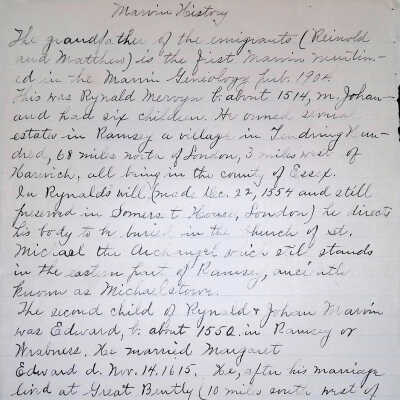 Marvin History
The grandfather of the emigrants (Reinold
and Matthew) is the first Marvin mention-
ed in the Marvin Geneology pub. 1904
This was Rynald Mervyn b. about 1514, m. Johan
and had six children. He owned several
estates in Ramsey a village in Tendring Hun-
dred, 68 miles north of London, 3 miles west of
Harwich, all bring in the county of Essex.
In Rynalds will (made Dec. 22, 1554 and still
preserved in Somerset House, London) he directs
his body to be buried in the church of St.
Michael the Archangel which still stands
in the eastern part of Ramsey, anciently
known as Michaelstowe.
The second child of Rynald & Johan Marvin
was Edward, b. about 1550 in Ramsey or
Wrabness. He married Margaret
Edward d. Nov. 14. 1615. He, after his marriage
lived at Great Bently (10 miles south west of